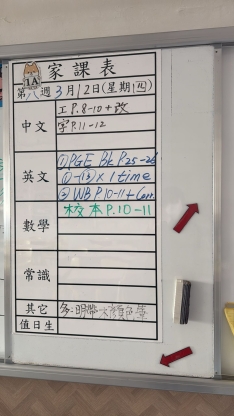 家課表
1A
第八週 3月12日(星期四)
中文 工P.8-10+改
字P.11-12
英文 ①PGE Bk P.25-26
①-⑬×1 time
②WB P.10-11+Corr.
數學 校本P.10-11
常識
其它 多:明帶
值日生